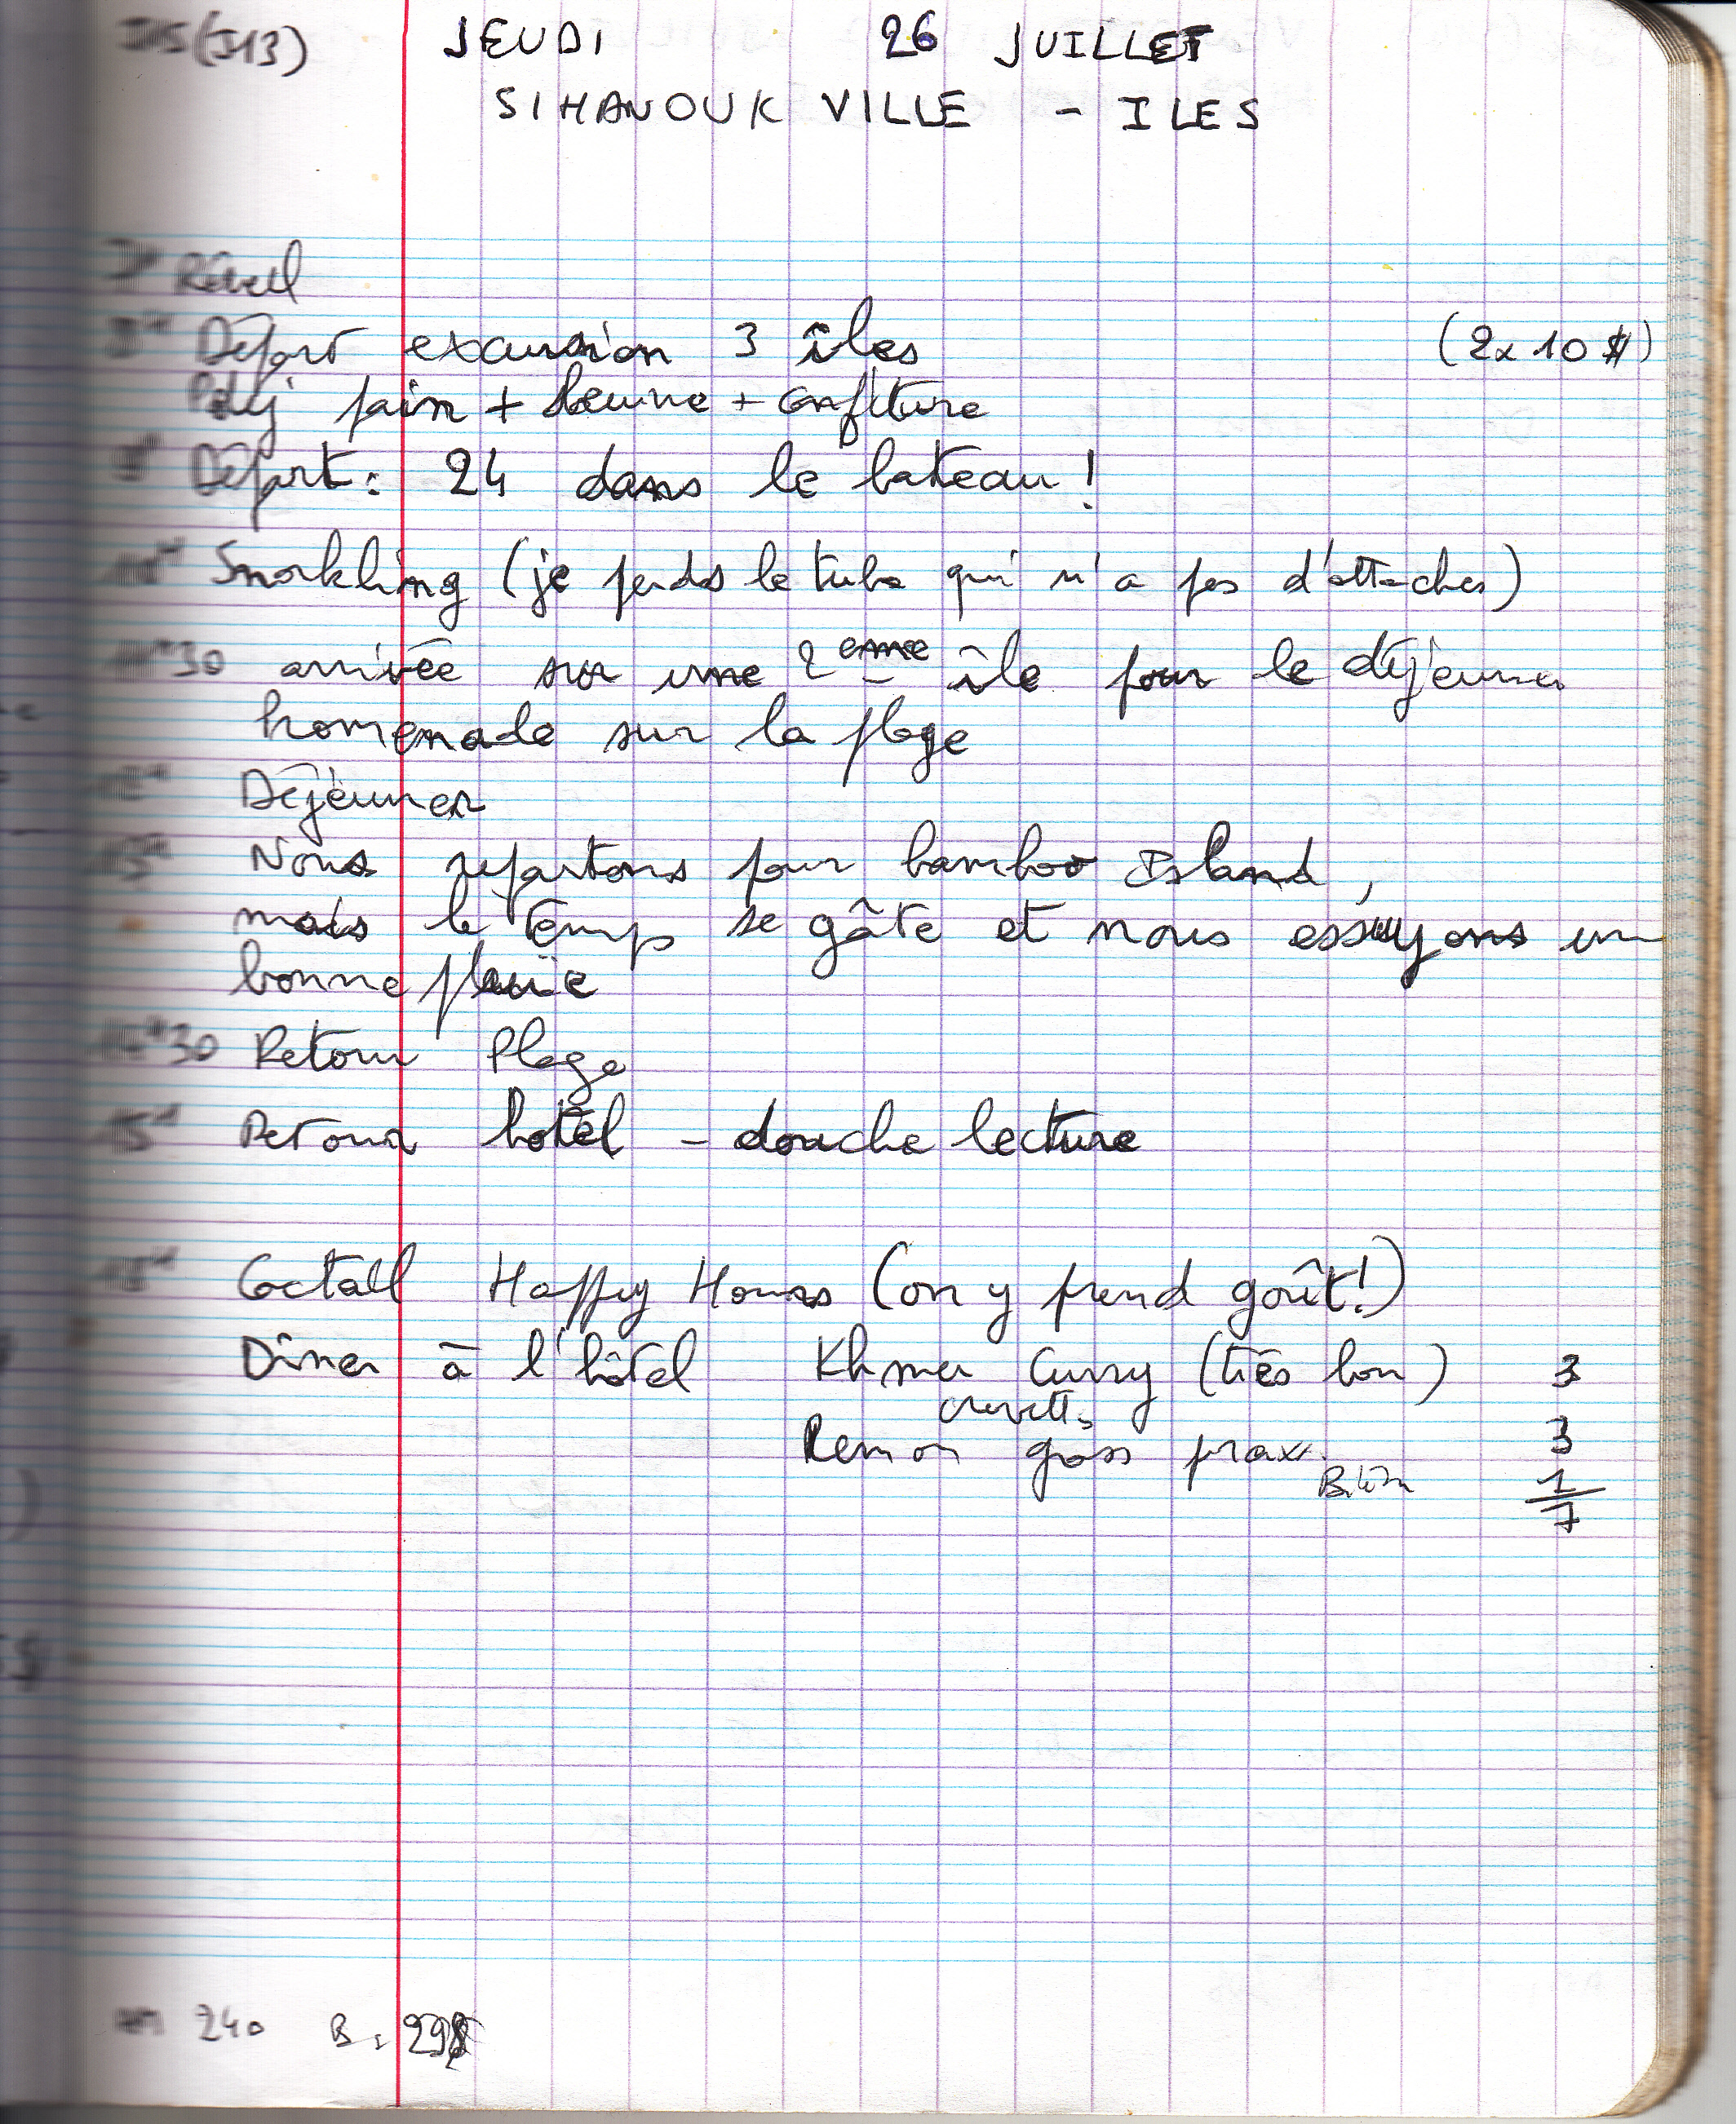 J15 (J13) JEUDI 26 JUILLET
SIHANOUK VILLE - ILES
7H Réveil
8H Départ excursion 3 îles (2x10$)
Pdej pain + beurre + confiture
9H Départ : 24 dans le bateau !
10H Snorkling (je perds le tube qui n'a pas d'attaches)
11H30 arrivée sur une 2eme île pour le déjeuner
Promenade sur la plage
12H Déjeuner
13H Nous repartons pour bamboo Island,
mais le temps se gâte et nous essuyons une
bonne pluie
14H30 Retour Plage
15H Retour hotel - douche lecture
18H Coctail Happy Hours (on y prend goût!)
Dîner à l'hôtel Khmer Curry (très bon) 3
crevettes
gross 3
1
7
240 B: